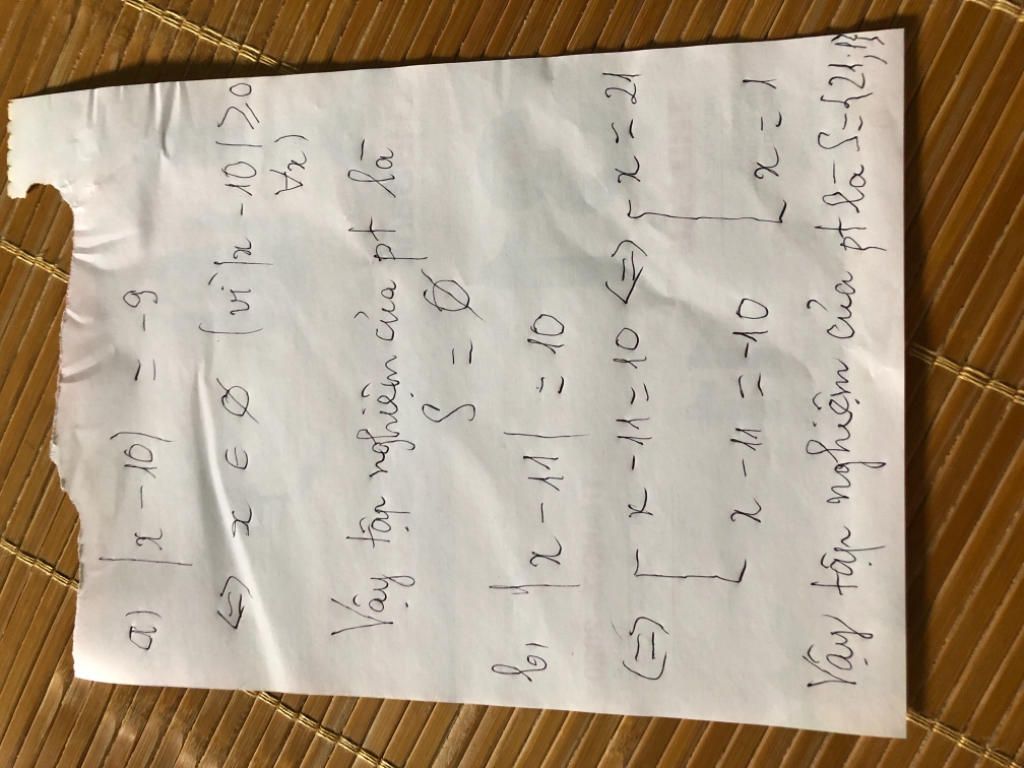 a) |x - 10| = -9
<=> x ∈ ∅ (vì |x - 10| ≥ 0
∀x)
Vậy tập nghiệm của pt là
S = ∅
b, |x - 11| = 10
<=> [ x - 11 = 10 <=> [ x = 21
[ x - 11 = -10 [ x = 1
Vậy tập nghiệm của pt là S = {21; 1}